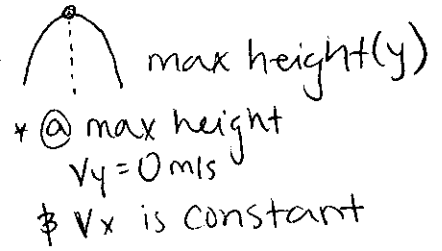 max height(y)
* @ max height
Vy = 0 m/s
& Vx is constant